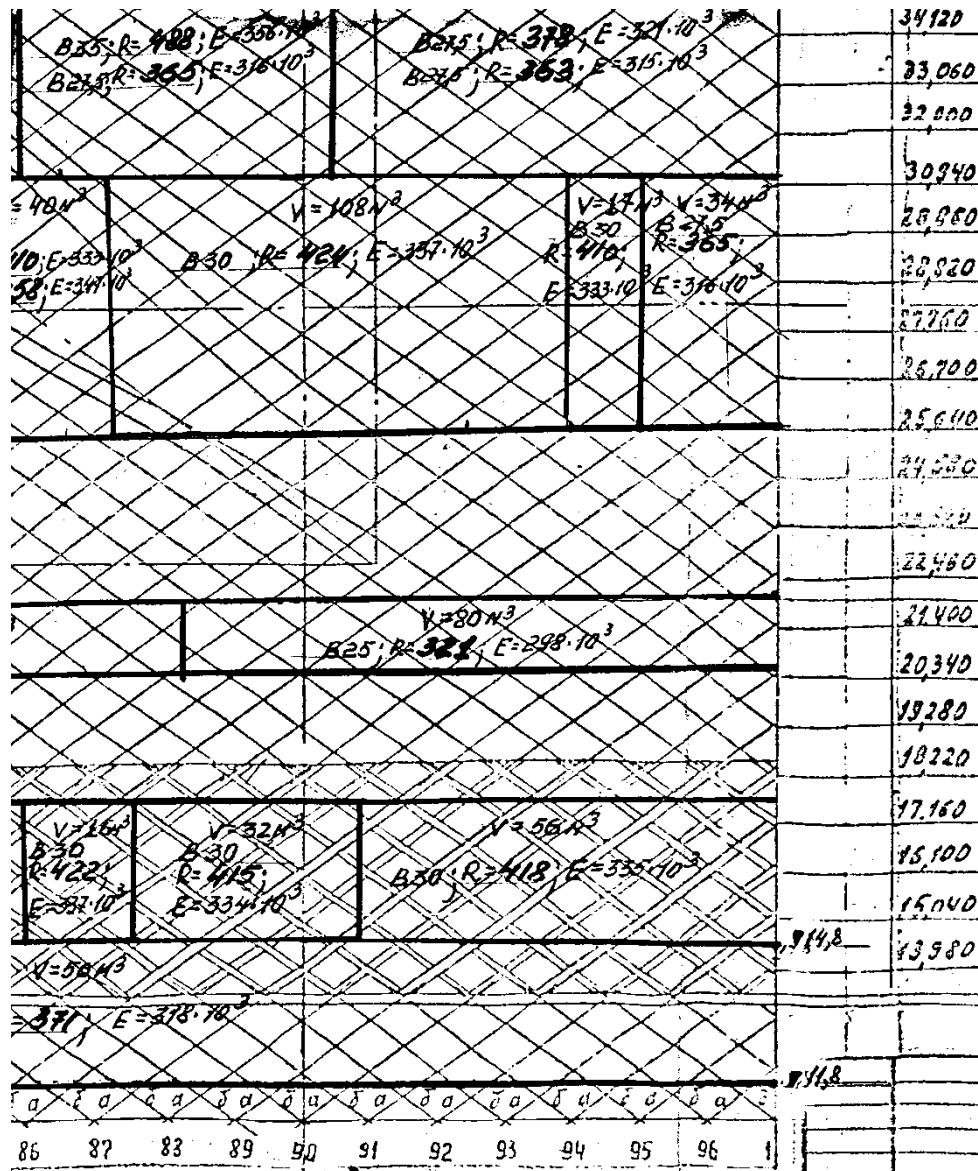 B35; R=488; E=356·10³
B27,5; R=365; E=316·10³
B27,5; R=378; E=321·10³
B27,5; R=363; E=315·10³
= 40м³
410; E=333·10³
58; E=347·10³
V=108м³
B30; R=424; E=337·10³
V=17м³
B30
R=410;
E=333·10³
V=34м³
R=365;
E=316·10³
V=80м³
B25; R=321; E=298·10³
B30
R=422;
E=337·10³
V=32м³
B30
R=415;
E=334·10³
V=56м³
B30; R=418; E=335·10³
V=50м³
=371; E=318·10³
34,120
33,060
32,000
30,940
28,820
27,760
26,700
25,640
22,460
21,400
20,340
19,280
18,220
17,160
16,100
15,040
14,8
13,980
11,8
б а б а б а б а б а б а б а б а б а б а б а
86 87 88 89 90 91 92 93 94 95 96 1